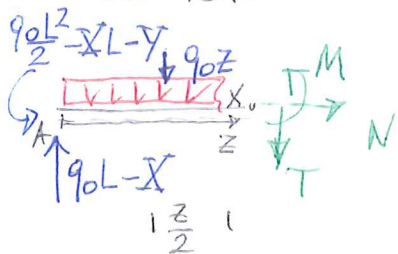 q₀L²/2 -XL-Y q₀Z
M
A Z N
q₀L-X T
Z/2